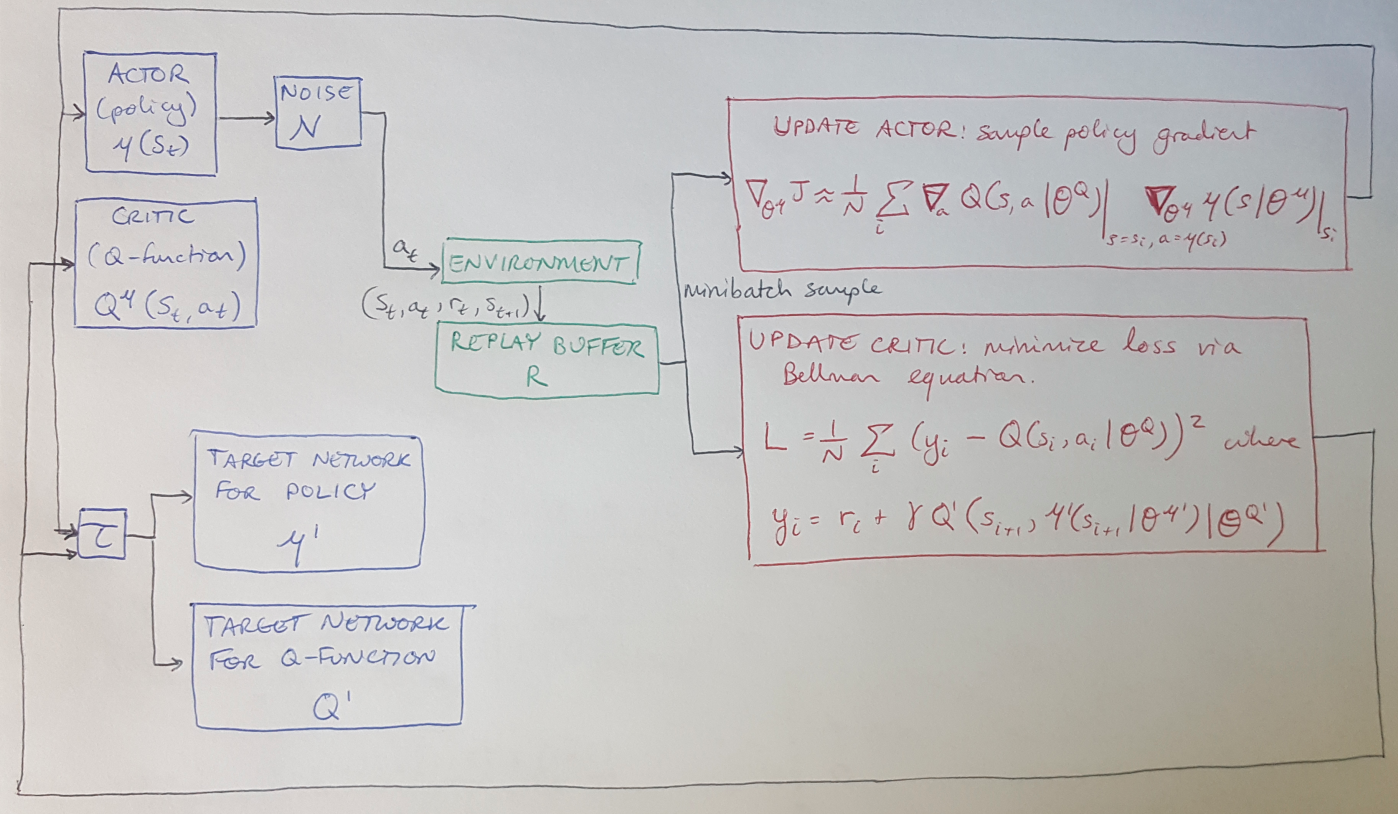 ACTOR
(policy)
μ(Sₜ)
NOISE
N
CRITIC
(Q-function)
Q^μ(Sₜ, aₜ)
aₜ
ENVIRONMENT
(Sₜ, aₜ, rₜ, Sₜ₊₁)
REPLAY BUFFER
R
minibatch sample
UPDATE ACTOR: sample policy gradient
∇_θ^μ J ≈ 1/N Σ_i ∇_a Q(s, a | θ^Q)|_{s=s_i, a=μ(s_i)} ∇_θ^μ μ(s | θ^μ)|_{s_i}
UPDATE CRITIC: minimize loss via
Bellman equation.
L = 1/N Σ_i (y_i − Q(s_i, a_i | θ^Q))² where
y_i = r_i + γ Q'(s_{i+1}, μ'(s_{i+1} | θ^μ') | θ^Q')
τ
TARGET NETWORK
FOR POLICY
μ'
TARGET NETWORK
FOR Q-FUNCTION
Q'